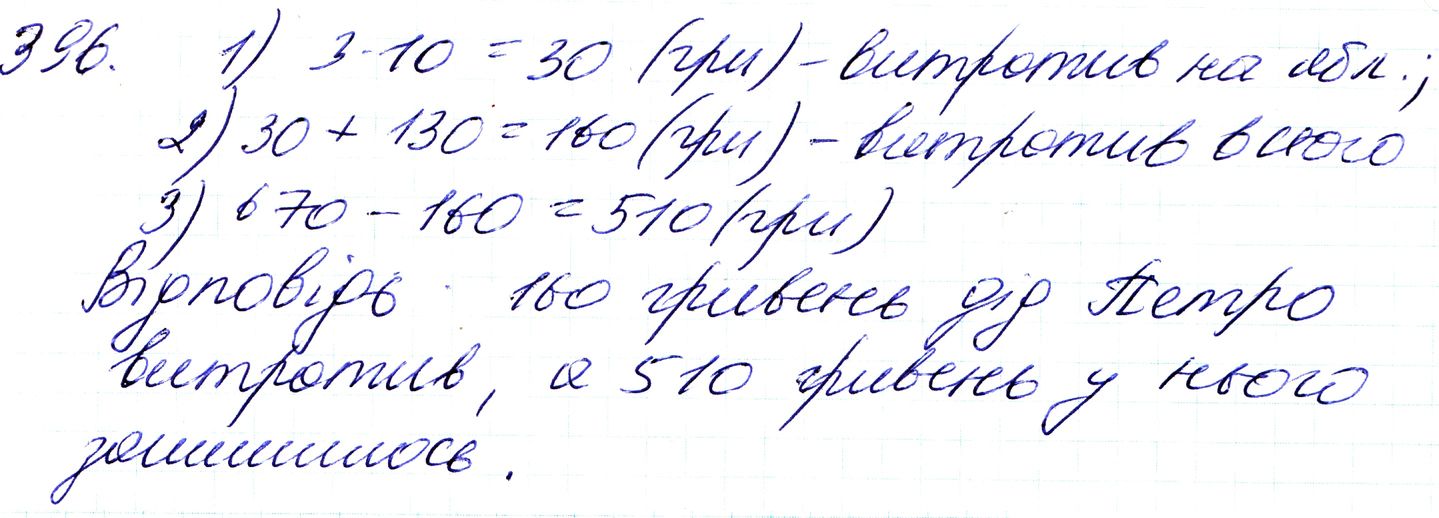 396. 1) 3·10 = 30 (грн) – витротив на ябл.;
2) 30 + 130 = 160 (грн) – витротив всього
3) 670 – 160 = 510 (грн)
Відповідь 160 гривень дід Петро
витротив, а 510 гривень у нього
залишилось.